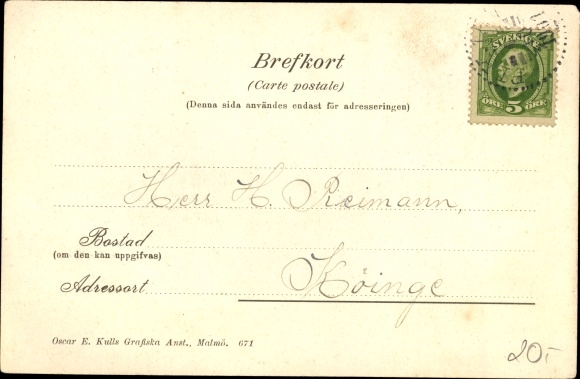 Brefkort
(Carte postale)
(Denna sida användes endast för adresseringen)
SVERIGE
ÖRE 5 ÖRE
Herr H. Reimann,
Bostad
(om den kan uppgifvas)
Adressort
Köinge
Oscar E. Kulls Grafiska Anst., Malmö. 671
20:-